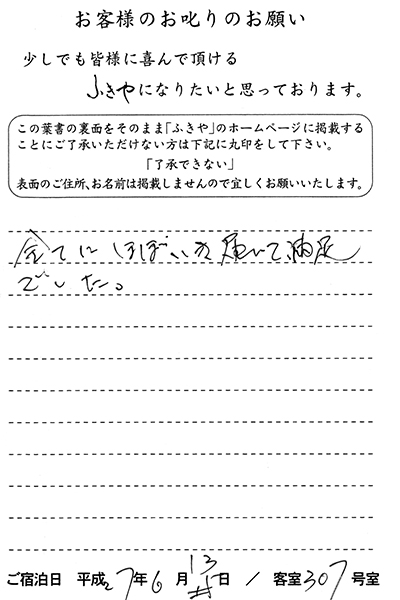 お客様のお叱りのお願い
少しでも皆様に喜んで頂ける
ふきやになりたいと思っております。
この葉書の裏面をそのまま「ふきや」のホームページに掲載する
ことにご了承いただけない方は下記に丸印をして下さい。
「了承できない」
表面のご住所、お名前は掲載しませんので宜しくお願いいたします。
全てに ほぼ いき届いて満足
でした。
ご宿泊日 平成27年6月13日 / 客室307号室